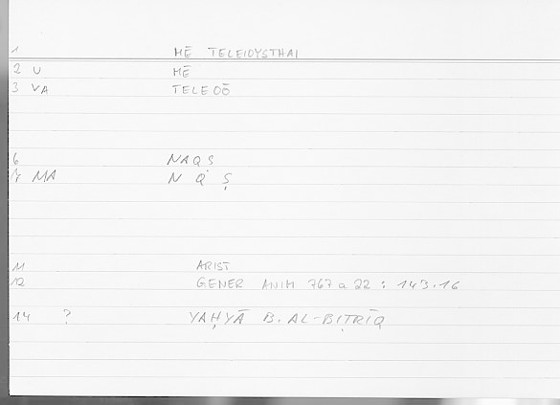 1 MĒ TELEIOYSTHAI
2 U MĒ
3 VA TELEOŌ
6 NAQṢ
7 MA N Q Ṣ
11 ARIST
12 GENER ANIM 767 a 22 : 143.16
14 ? YAḤYĀ B. AL-BIṬRĪQ